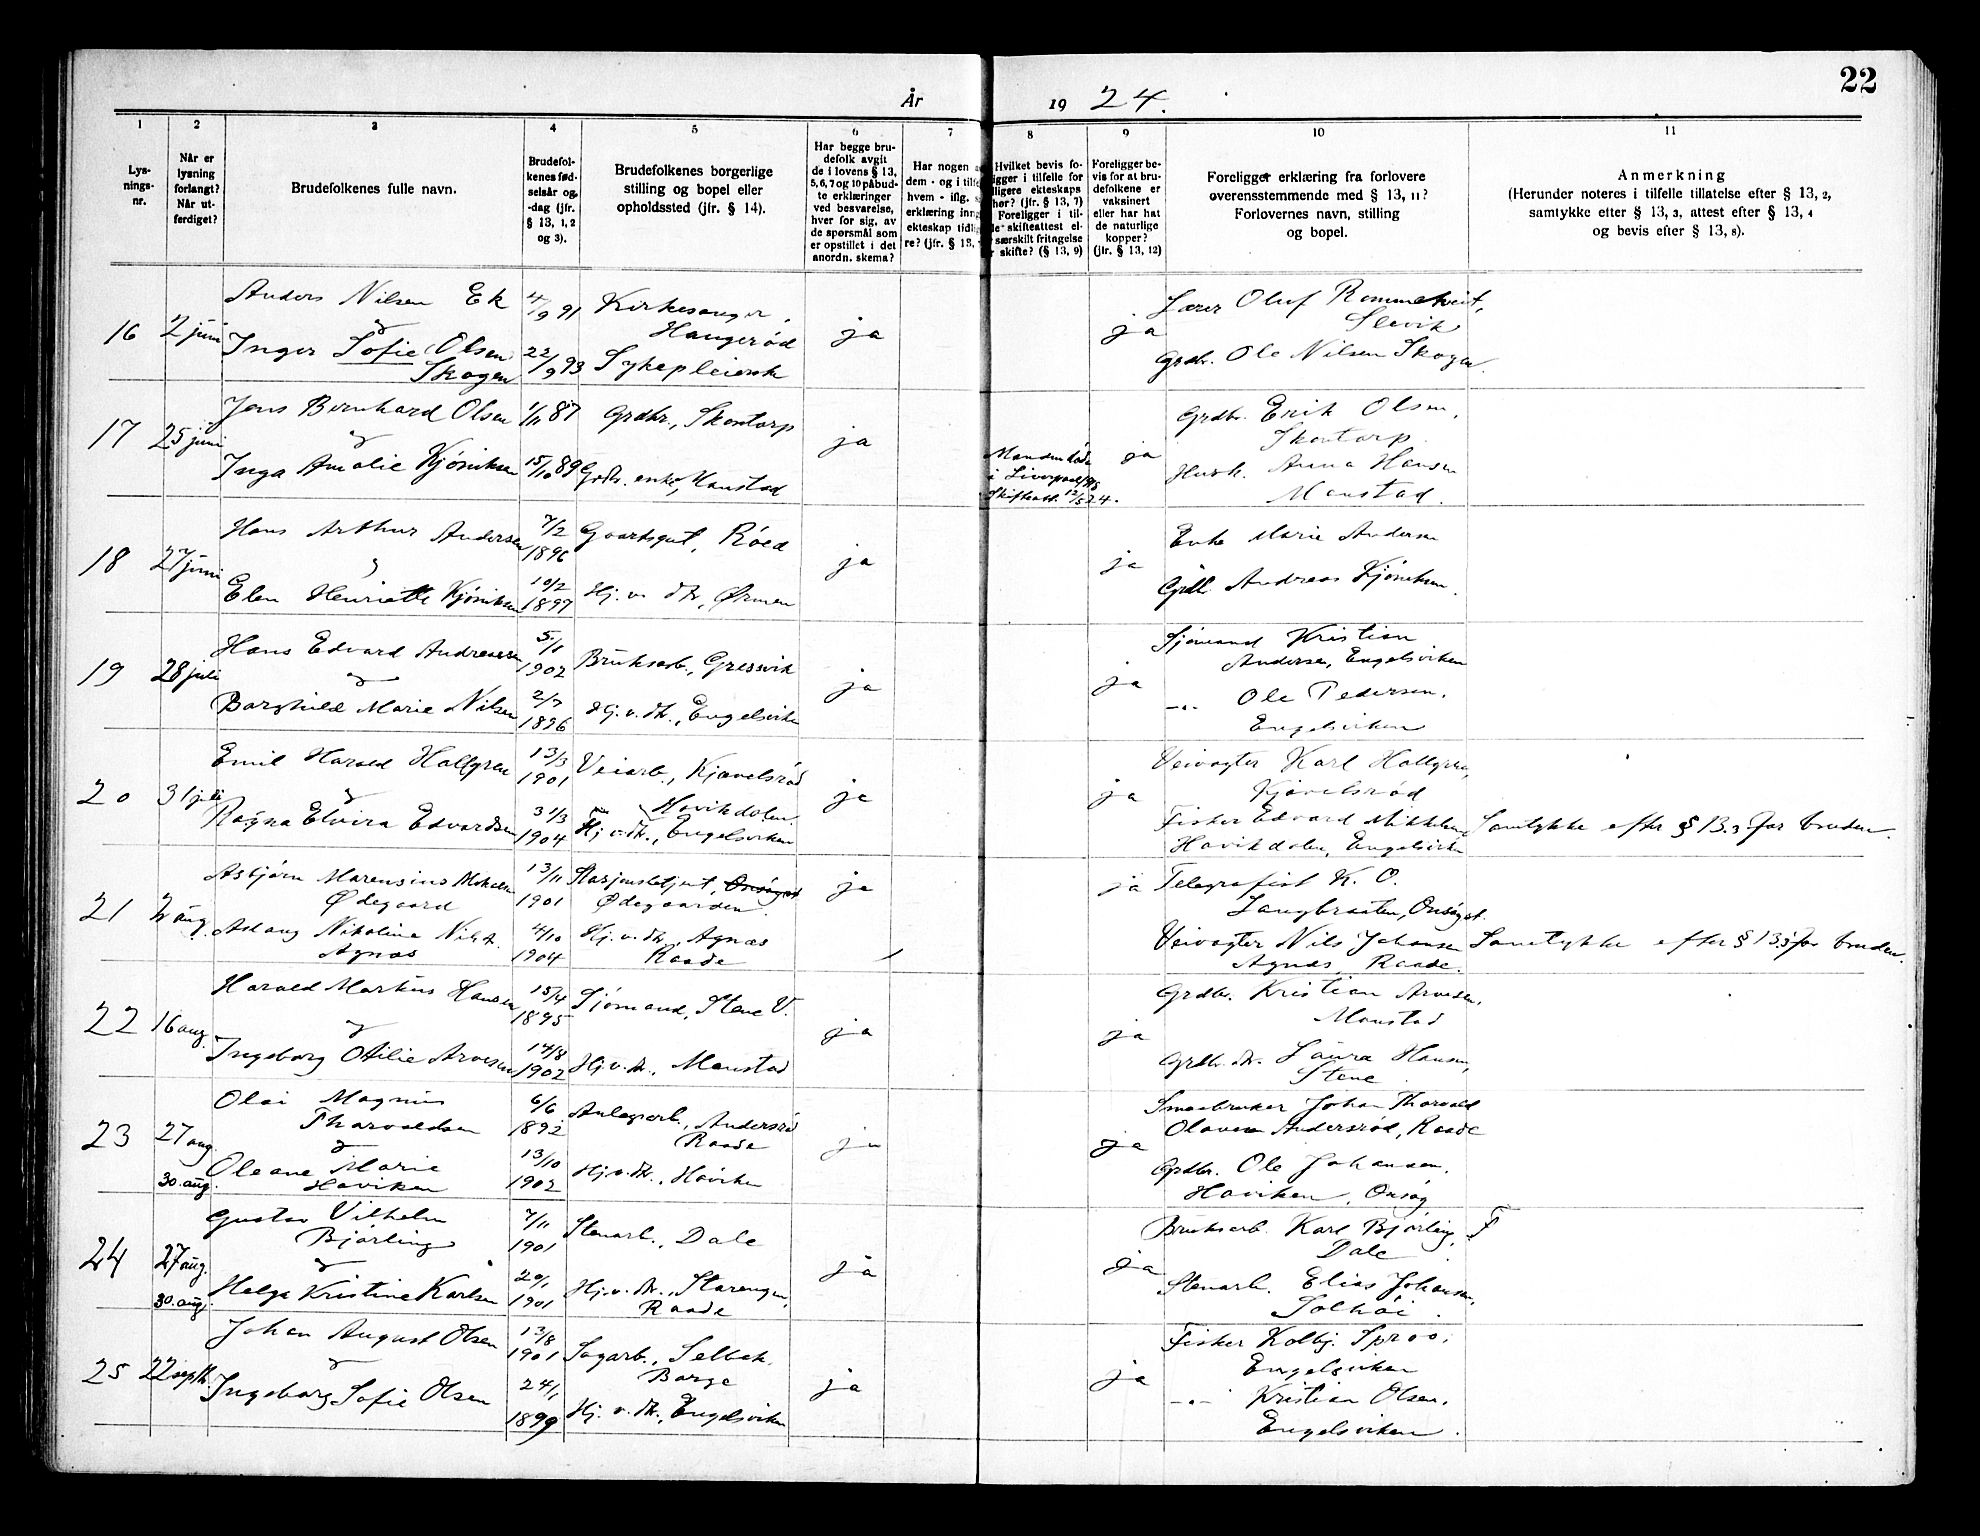 22
År 1924.
1 2 3 4 5 6 7 8 9 10 11
Lys-
nings-
nr.
Når er
lysning
forlangt?
Når ut-
ferdiget?
Brudefolkenes fulle navn.
Brudefol-
kenes fød-
selsår og
-dag (jfr.
§ 13, 1, 2
og 3).
Brudefolkenes borgerlige
stilling og bopel eller
opholdssted (jfr. § 14).
Har begge bru-
defolk avgit
de i lovens § 13,
5, 6, 7 og 10 påbud-
te erklæringer
ved besvarelse,
hver for sig, av
de spørsmål som
er opstillet i det
anordn. skema?
Har nogen a
dem - og i tilfe
hvem - iflg. s
erklæring inng
ekteskap tidlig
re? (jfr. § 13,
Hvilket bevis fo-
igger i tilfelle for
ligere ekteskaps
hør? (jfr. § 13, 7)
Foreligger i til-
le skifteattest el-
særskilt fritagelse
r skifte? (§ 13, 9)
Foreligger be-
vis for at bru-
defolkene er
vaksinert
eller har hat
de naturlige
kopper?
(jfr. § 13, 12)
Foreligger erklæring fra forlovere
overensstemmende med § 13, 11?
Forlovernes navn, stilling
og bopel.
Anmerkning
(Herunder noteres i tilfelle tillatelse efter § 13, 2,
samtykke efter § 13, 3, attest efter § 13, 4
og bevis efter § 13, 8).
16 2 juni
Anders Nilsen Ek 4/9 91 Kirkesanger, Haugerød
Inger Sofie (Olsen) Skogen 22/9 93 Sykepleierske
ja ja
Lærer Oluf Rommetveit, Slevik
Grdbr. Ole Nilsen Skogen
17 25 juni
Jens Bernhard Olsen 1/11 87 Grdbr., Skontorp
Inga Amalie Kjøniksen 15/10 89 Grdbr. enke, Manstad
ja
i Liverpool
Skifteatt. 12/5 24.
ja
Grdbr. Erik Olsen, Skontorp
Husk. Anna Hansen Manstad.
18 27 juni
Hans Arthur Andersen 7/2 1896 Gaardsgut, Röed
Elen Henriette Kjøniksen 10/2 1897 Hj. v. dtr, Ørmen
ja ja
Enke Marie Andersen
Grdb. Andreas Kjöniksen.
19 28 juli
Hans Edvard Andreasen 5/1 1902 Bruksarb., Gressvik
Borghild Marie Nilsen 2/7 1896 Hj. v. dtr., Engelsviken
ja ja
Sjömand Kristian Andersen, Engelsviken
-"- Ole Pedersen, Engelsviken
20 31 juli
Emil Harald Hallgren 13/3 1901 Veiarb., Kjævelsröd
Ragna Elvira Edvardsen 31/3 1904 Hj. v. dtr., Havikdalen. Engelsviken
ja ja
Veivogter Karl Hallgren, Kjævelsröd
Fisker Edvard Mikkelsen Havikdalen, Engelsviken
Samtykke efter § 13.3 for bruden
21 2 aug.
Asbjørn Marensius Ødegaard 13/11 1901 Stasjonsbetjent, Onsøy st. Ødegaarden.
Aslaug Nikoline Nilsd. Agnæs 4/10 1904 Hj. v. dtr., Agnæs Raade
ja ja
Telegrafist K. O. Langbraaten, Onsöy st.
Veivogter Nils Johansen Agnæs, Raade.
Samtykke efter § 13.3 for bruden.
22 16 aug.
Harald Markus Hansen 15/4 1895 Sjømand, Stene V.
Ingeborg Otilie Arvesen 14/8 1902 Hj. v. dtr., Manstad
ja ja
Grdbr. Kristian Arvesen, Manstad
Grdbr. dtr. Laura Hansen, Stene
23 27 aug. 30. aug.
Olai Magnus Thorvaldsen 6/6 1892 Anlegsarb., Andersröd Raade
Oleane Marie Haviken 13/10 1902 Hj. v. dtr., Haviken
ja ja
Smaabruker Johan Thorvald Olavsen Andersröd, Raade
Grdbr. Ole Johansen, Haviken, Onsöy
24 27 aug. 30. aug.
Gustav Vilhelm Björling 7/11 1901 Stenarb., Dale
Helga Kristine Karlsen 20/1 1901 Hj. v. dtr., Starengen, Raade
ja ja
Bruksarb. Karl Björling, Dale
Stenarb. Elias Johansen, Solhöi
25 22 sept.
Johan August Olsen 13/8 1901 Sagarb., Selbak, Borge
Ingeborg Sofie Olsen 24/1 1899 Hj. v. dtr., Engelsviken
ja ja
Fisker Kolbj. Sproo, Engelsviken
-"- Kristian Olsen, Engelsviken.